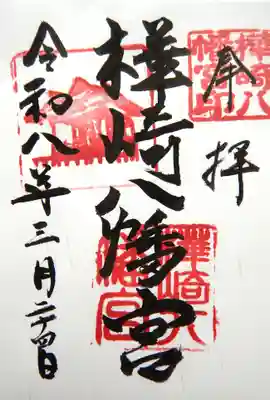 奉拝
樺崎八幡宮
樺崎八幡宮
樺崎八幡宮
令和八年三月二十四日